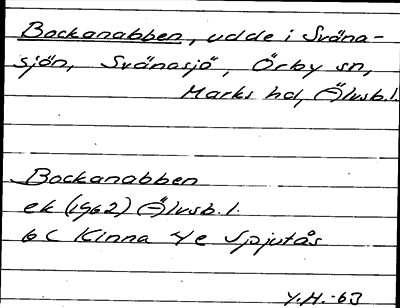 Bockanabben, udde i Sväna-
sjön, Svänasjö, Örby sn,
Marks hd, Älvsb. l.
Bockanabben
ek (1962) Älvsb. l.
6 C Kinna 4 e Spjutås
Y.H.-63